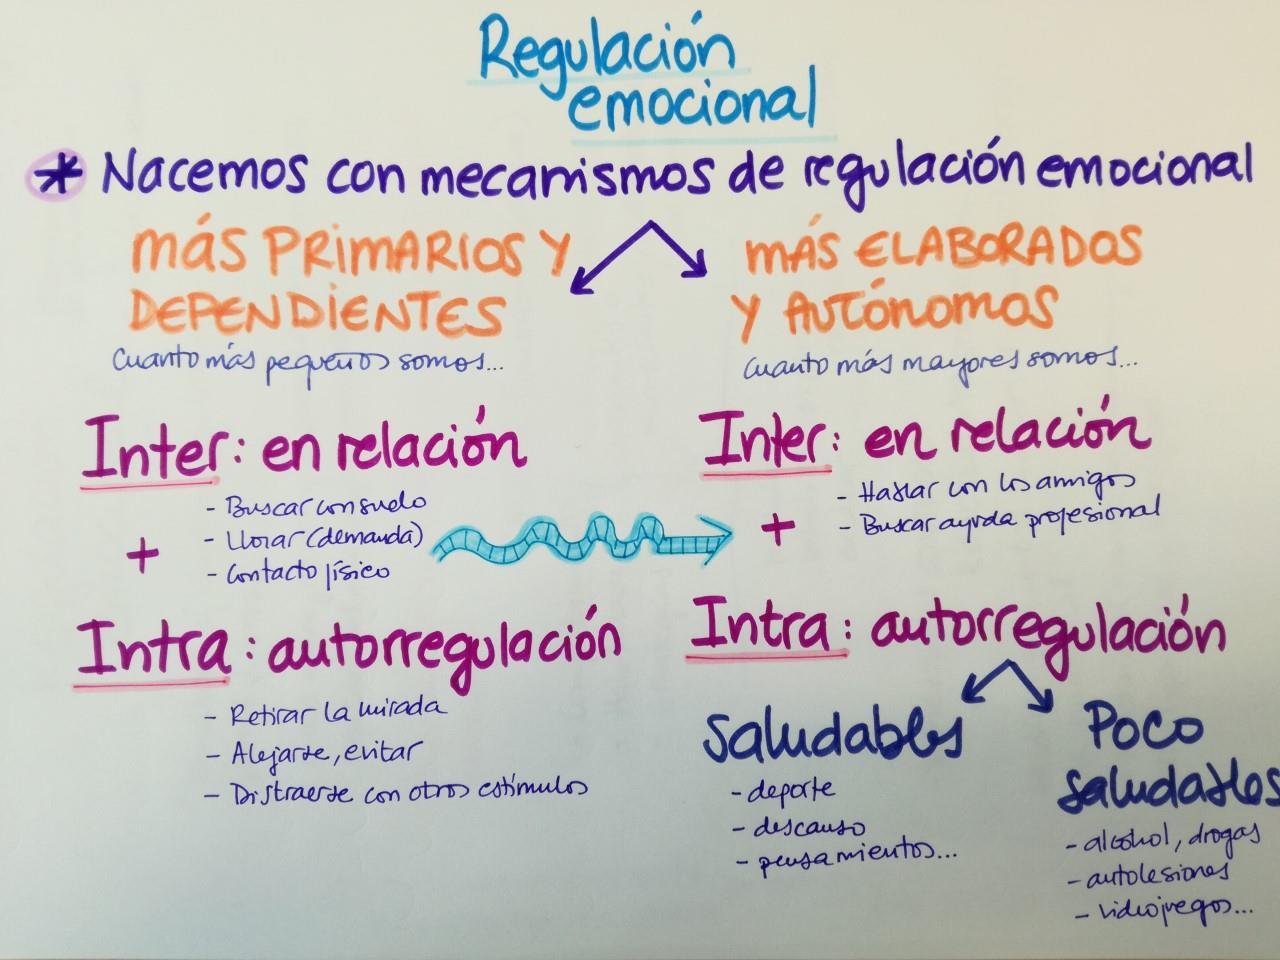 Regulación
emocional
* Nacemos con mecanismos de regulación emocional
más PRIMARIOS Y
DEPENDIENTES
Cuanto más pequeños somos...
Inter: en relación
- Buscar consuelo
- Llorar (demanda)
- Contacto físico
+
Intra: autorregulación
- Retirar la mirada
- Alejarse, evitar
- Distraerse con otros estímulos
MÁS ELABORADOS
Y AUTÓNOMOS
Cuanto más mayores somos...
Inter: en relación
- Hablar con los amigos
- Buscar ayuda profesional
+
Intra: autorregulación
Saludables
- deporte
- descanso
- pensamientos...
Poco
saludables
- alcohol, drogas
- autolesiones
- videojuegos...